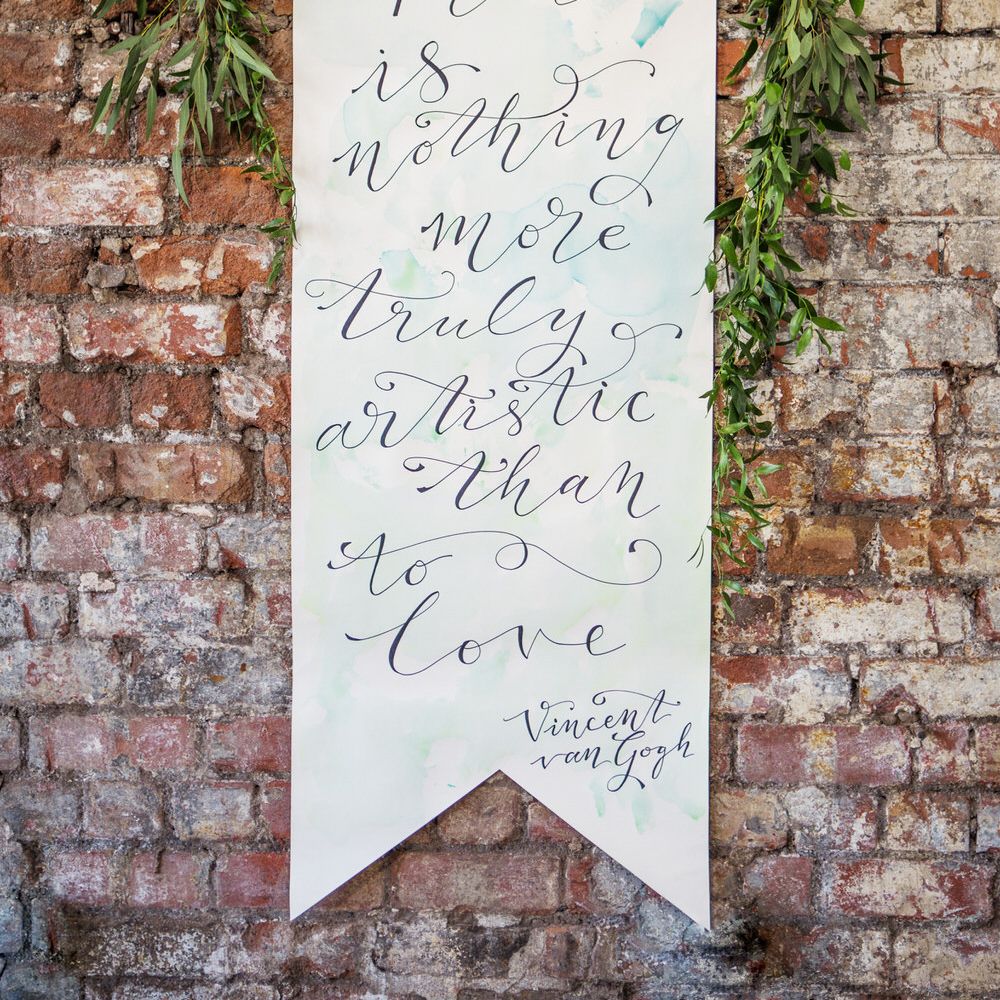 is
nothing
more
truly
artistic
than
to
love
Vincent
van Gogh